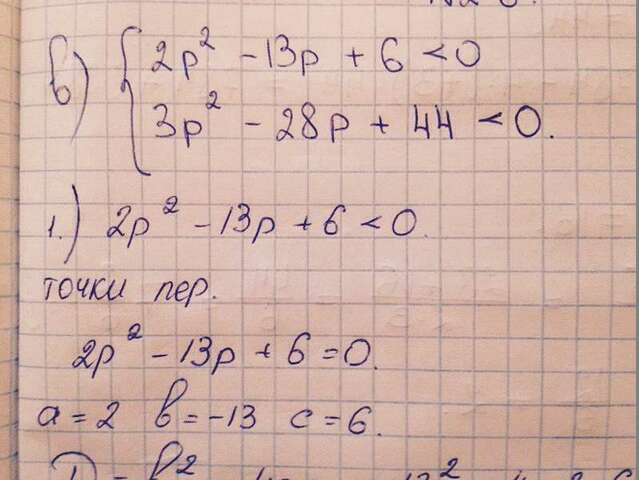 в) { 2p² - 13p + 6 < 0
3p² - 28p + 44 < 0.
1.) 2p² - 13p + 6 < 0.
точки пер.
2p² - 13p + 6 = 0.
a = 2 b = -13 c = 6.